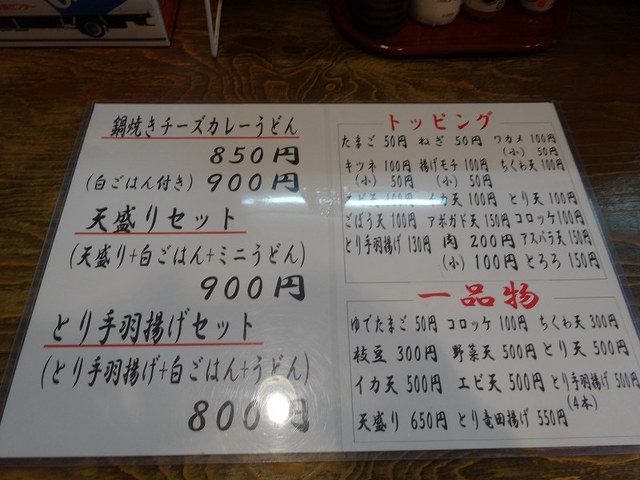 鍋焼きチーズカレーうどん
850円
(白ごはん付き) 900円
天盛りセット
(天盛り+白ごはん+ミニうどん)
900円
とり手羽揚げセット
(とり手羽揚げ+白ごはん+うどん)
800円
トッピング
たまご 50円 ねぎ 50円 ワカメ 100円
(小) 50円
キツネ 100円 揚げモチ 100円 ちくわ天 100円
(小) 50円 (小) 50円
天 100円 イカ天 100円 とり天 100円
ごぼう天 100円 アボガド天 150円 コロッケ 100円
とり手羽揚げ 130円 肉 200円 アスパラ天 150円
(小) 100円 とろろ 150円
一品物
ゆでたまご 50円 コロッケ 100円 ちくわ天 300円
枝豆 300円 野菜天 500円 とり天 500円
イカ天 500円 エビ天 500円 とり手羽揚げ 500円
(4本)
天盛り 650円 とり竜田揚げ 550円